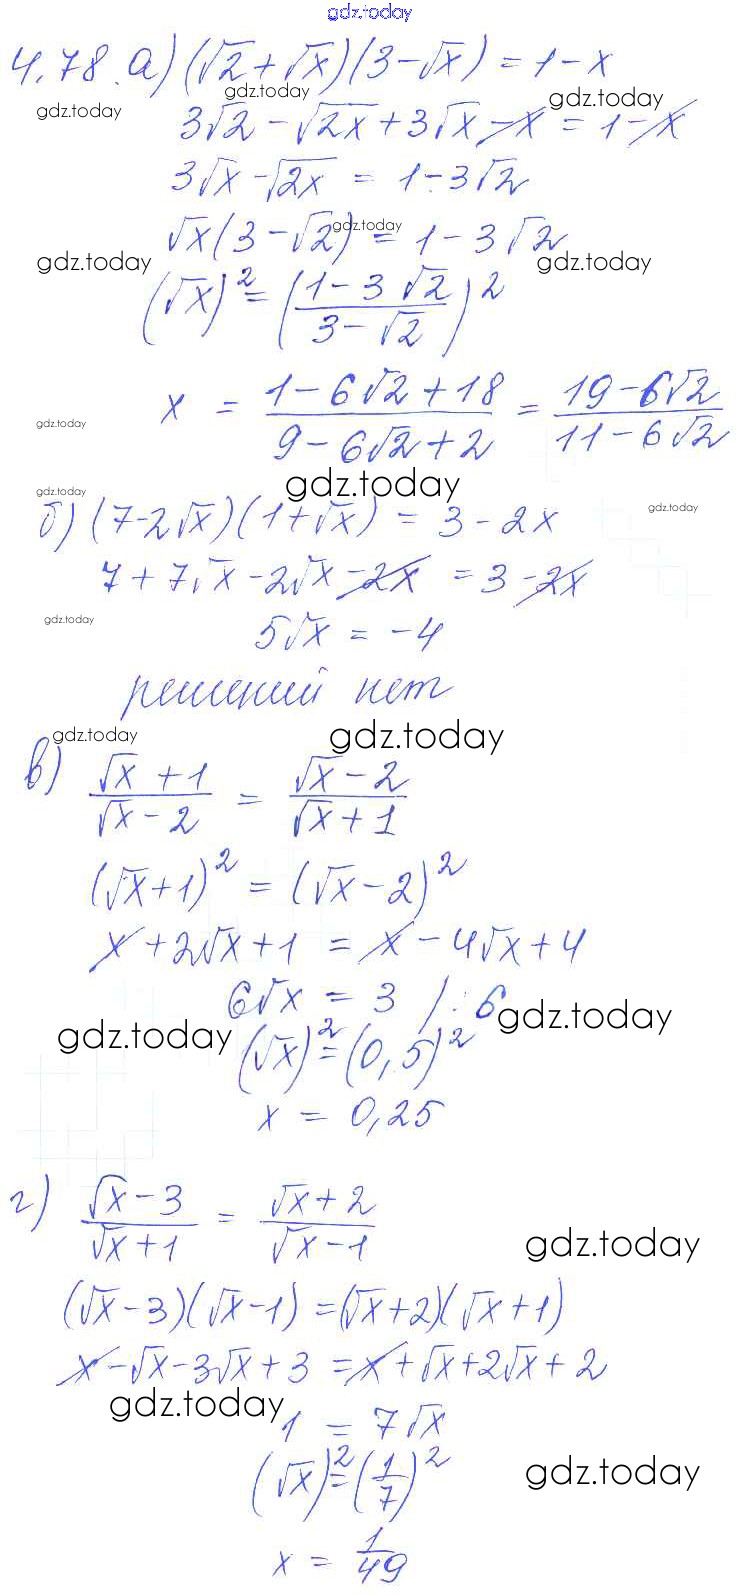 gdz.today
4.78. а) (√2 + √x)(3 − √x) = 1 − x
gdz.today gdz.today gdz.today
3√2 − √2x + 3√x − x = 1 − x
3√x − √2x = 1 − 3√2
gdz.today
√x(3 − √2) = 1 − 3√2
gdz.today gdz.today
(√x)² = ((1 − 3√2)/(3 − √2))²
x = (1 − 6√2 + 18)/(9 − 6√2 + 2) = (19 − 6√2)/(11 − 6√2)
gdz.today
gdz.today gdz.today
gdz.today
б) (7 − 2√x)(1 + √x) = 3 − 2x
7 + 7√x − 2√x − 2x = 3 − 2x
gdz.today
5√x = −4
решений нет
gdz.today gdz.today
в) (√x + 1)/(√x − 2) = (√x − 2)/(√x + 1)
(√x + 1)² = (√x − 2)²
x + 2√x + 1 = x − 4√x + 4
6√x = 3 /:6
gdz.today gdz.today
(√x)² = (0,5)²
x = 0,25
г) (√x − 3)/(√x + 1) = (√x + 2)/(√x − 1)
gdz.today
(√x − 3)(√x − 1) = (√x + 2)(√x + 1)
x − √x − 3√x + 3 = x + √x + 2√x + 2
gdz.today
1 = 7√x
(√x)² = (1/7)²
gdz.today
x = 1/49